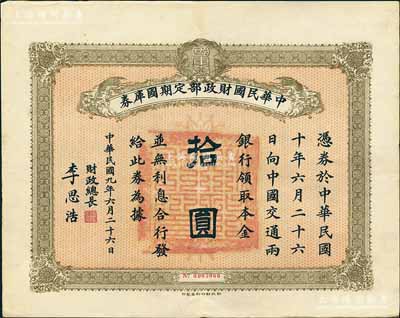 中華民國財政部定期國庫券
憑券於中華民國
十年六月二十六
日向中國交通兩
銀行領取本金
拾圓
並無利息合行發
給此券為據
中華民國九年六月二十六日
財政總長
李思浩